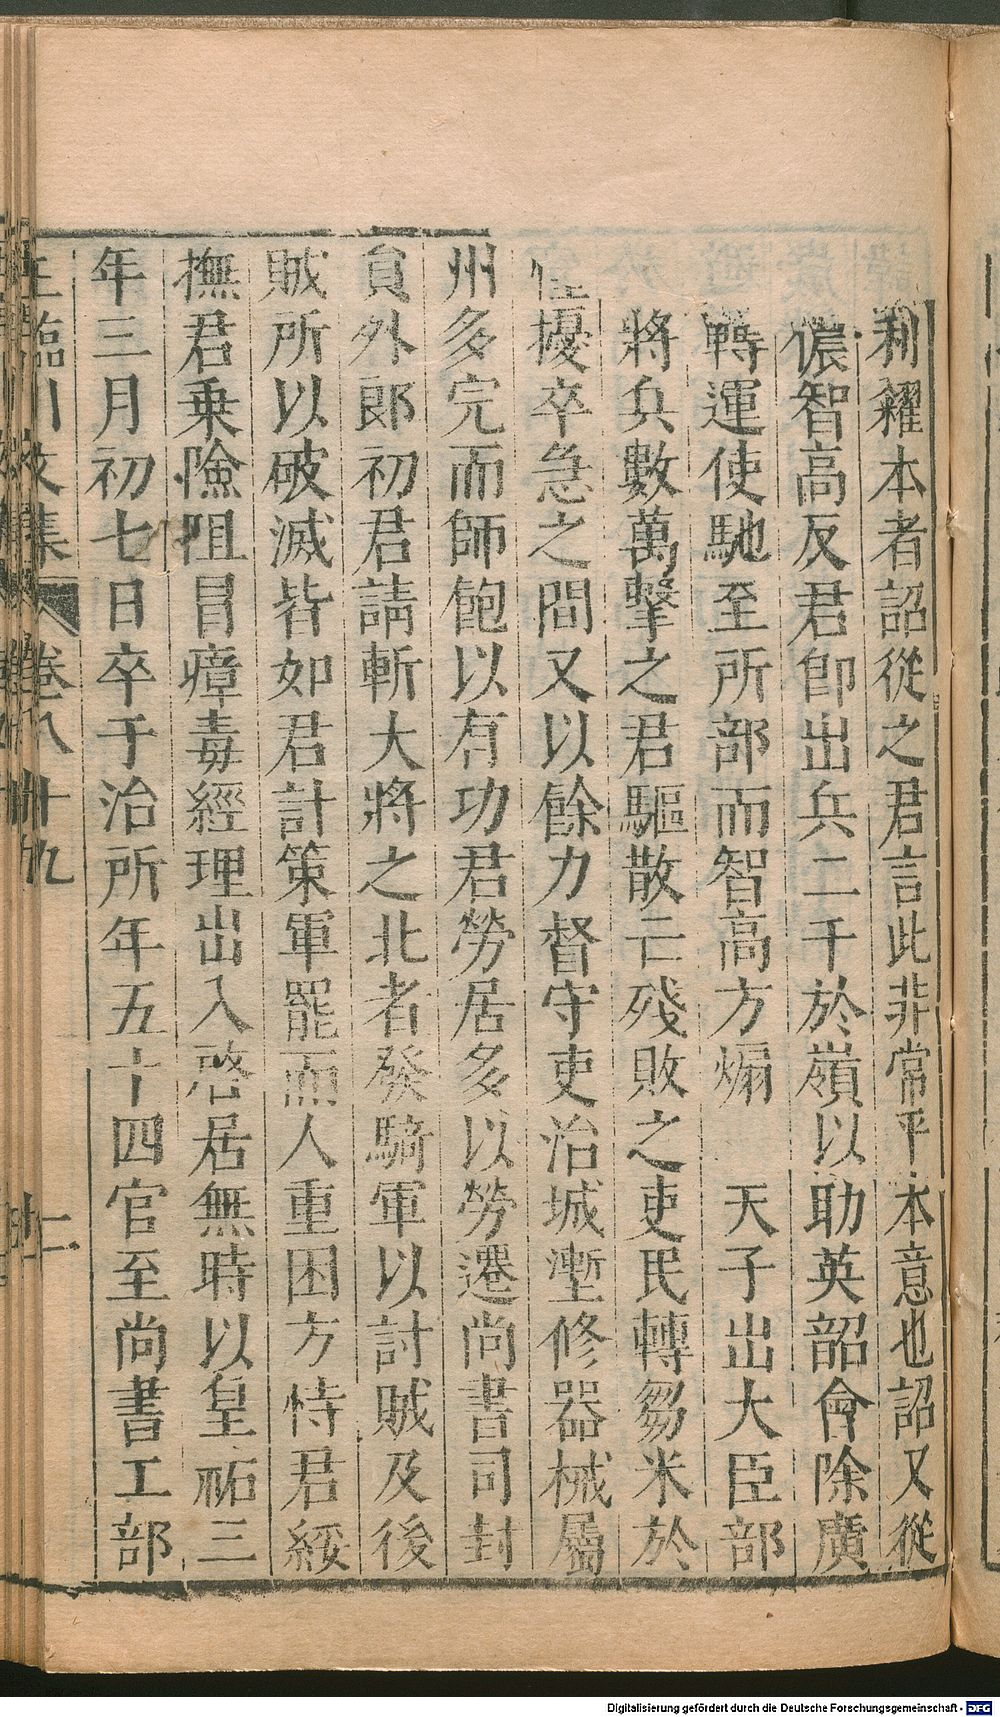 利糴本者詔從之君言此非常平本意也詔又從
儂智高反君即出兵二千於嶺以助英韶會除廣
轉運使馳至所部而智高方煽 天子出大臣部
將兵數萬擊之君驅散亡殘敗之吏民轉芻米於
擾卒急之間又以餘力督守吏治城塹修器械屬
州多完而師飽以有功君勞居多以勞遷尚書司封
員外郎初君請斬大將之北者發騎軍以討賊及後
賊所以破滅皆如君計策軍罷而人重困方恃君綏
撫君乗險阻冒瘴毒經理出入啓居無時以皇祐三
年三月初七日卒于治所年五十四官至尚書工部
王臨川文集 卷八十九 十二
Digitalisierung gefördert durch die Deutsche Forschungsgemeinschaft - DFG